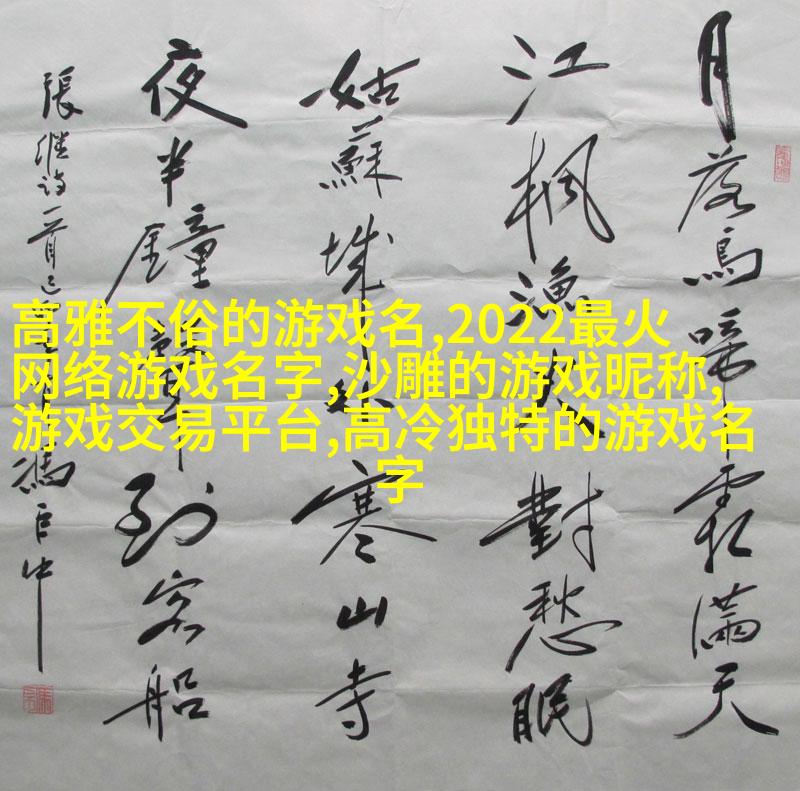 高雅不俗的游戏名,2022最火
网络游戏名字,沙雕的游戏昵称,
游戏交易平台,高冷独特的游戏名
字
月落烏啼霜滿天
江楓漁火對愁眠
姑蘇城外寒山寺
夜半鐘聲到客船
張继诗一首